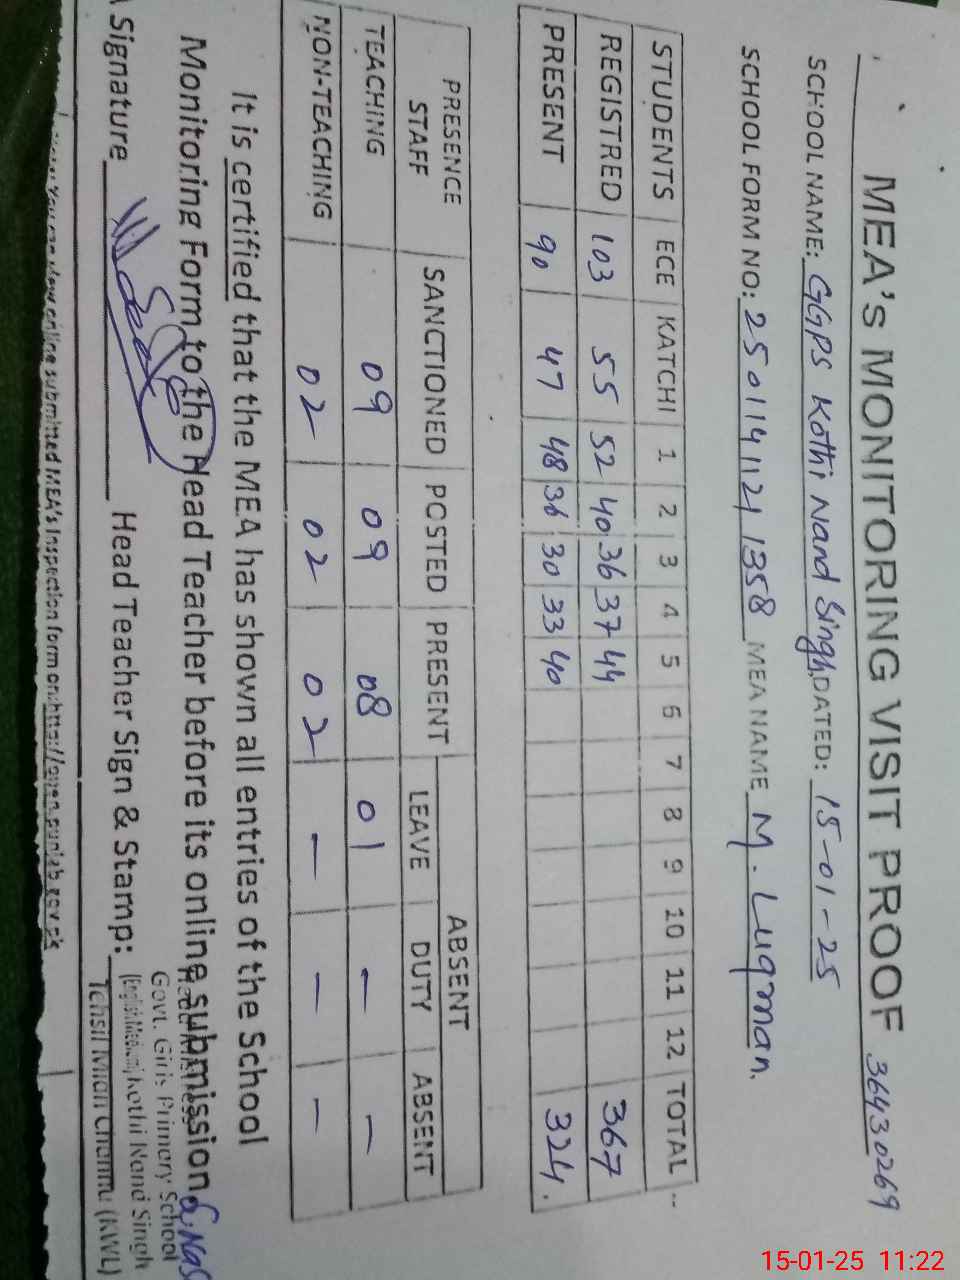 MEA's MONITORING VISIT PROOF 36430269
SCHOOL NAME: GGPS Kothi Nand Singh DATED: 15-01-25
SCHOOL FORM NO: 25011411211358 MEA NAME M. Luqman.
STUDENTS ECE KATCHI 1 2 3 4 5 6 7 8 9 10 11 12 TOTAL
REGISTRED 103 55 52 40 36 37 44 367
PRESENT 90 47 48 36 30 33 40 324.
PRESENCE STAFF SANCTIONED POSTED PRESENT ABSENT
LEAVE DUTY ABSENT
TEACHING 09 09 08 01 — —
NON-TEACHING 02 02 02 — — —
It is certified that the MEA has shown all entries of the School
Monitoring Form to the Head Teacher before its online submission.
Signature Head Teacher Sign & Stamp:
Govt. Girls Primary School
(English Medium) Kothi Nand Singh
Tehsil Mian Channu (KWL)
You can view online submitted MEA's Inspection form on: https://open.punjab.gov.pk
15-01-25 11:22